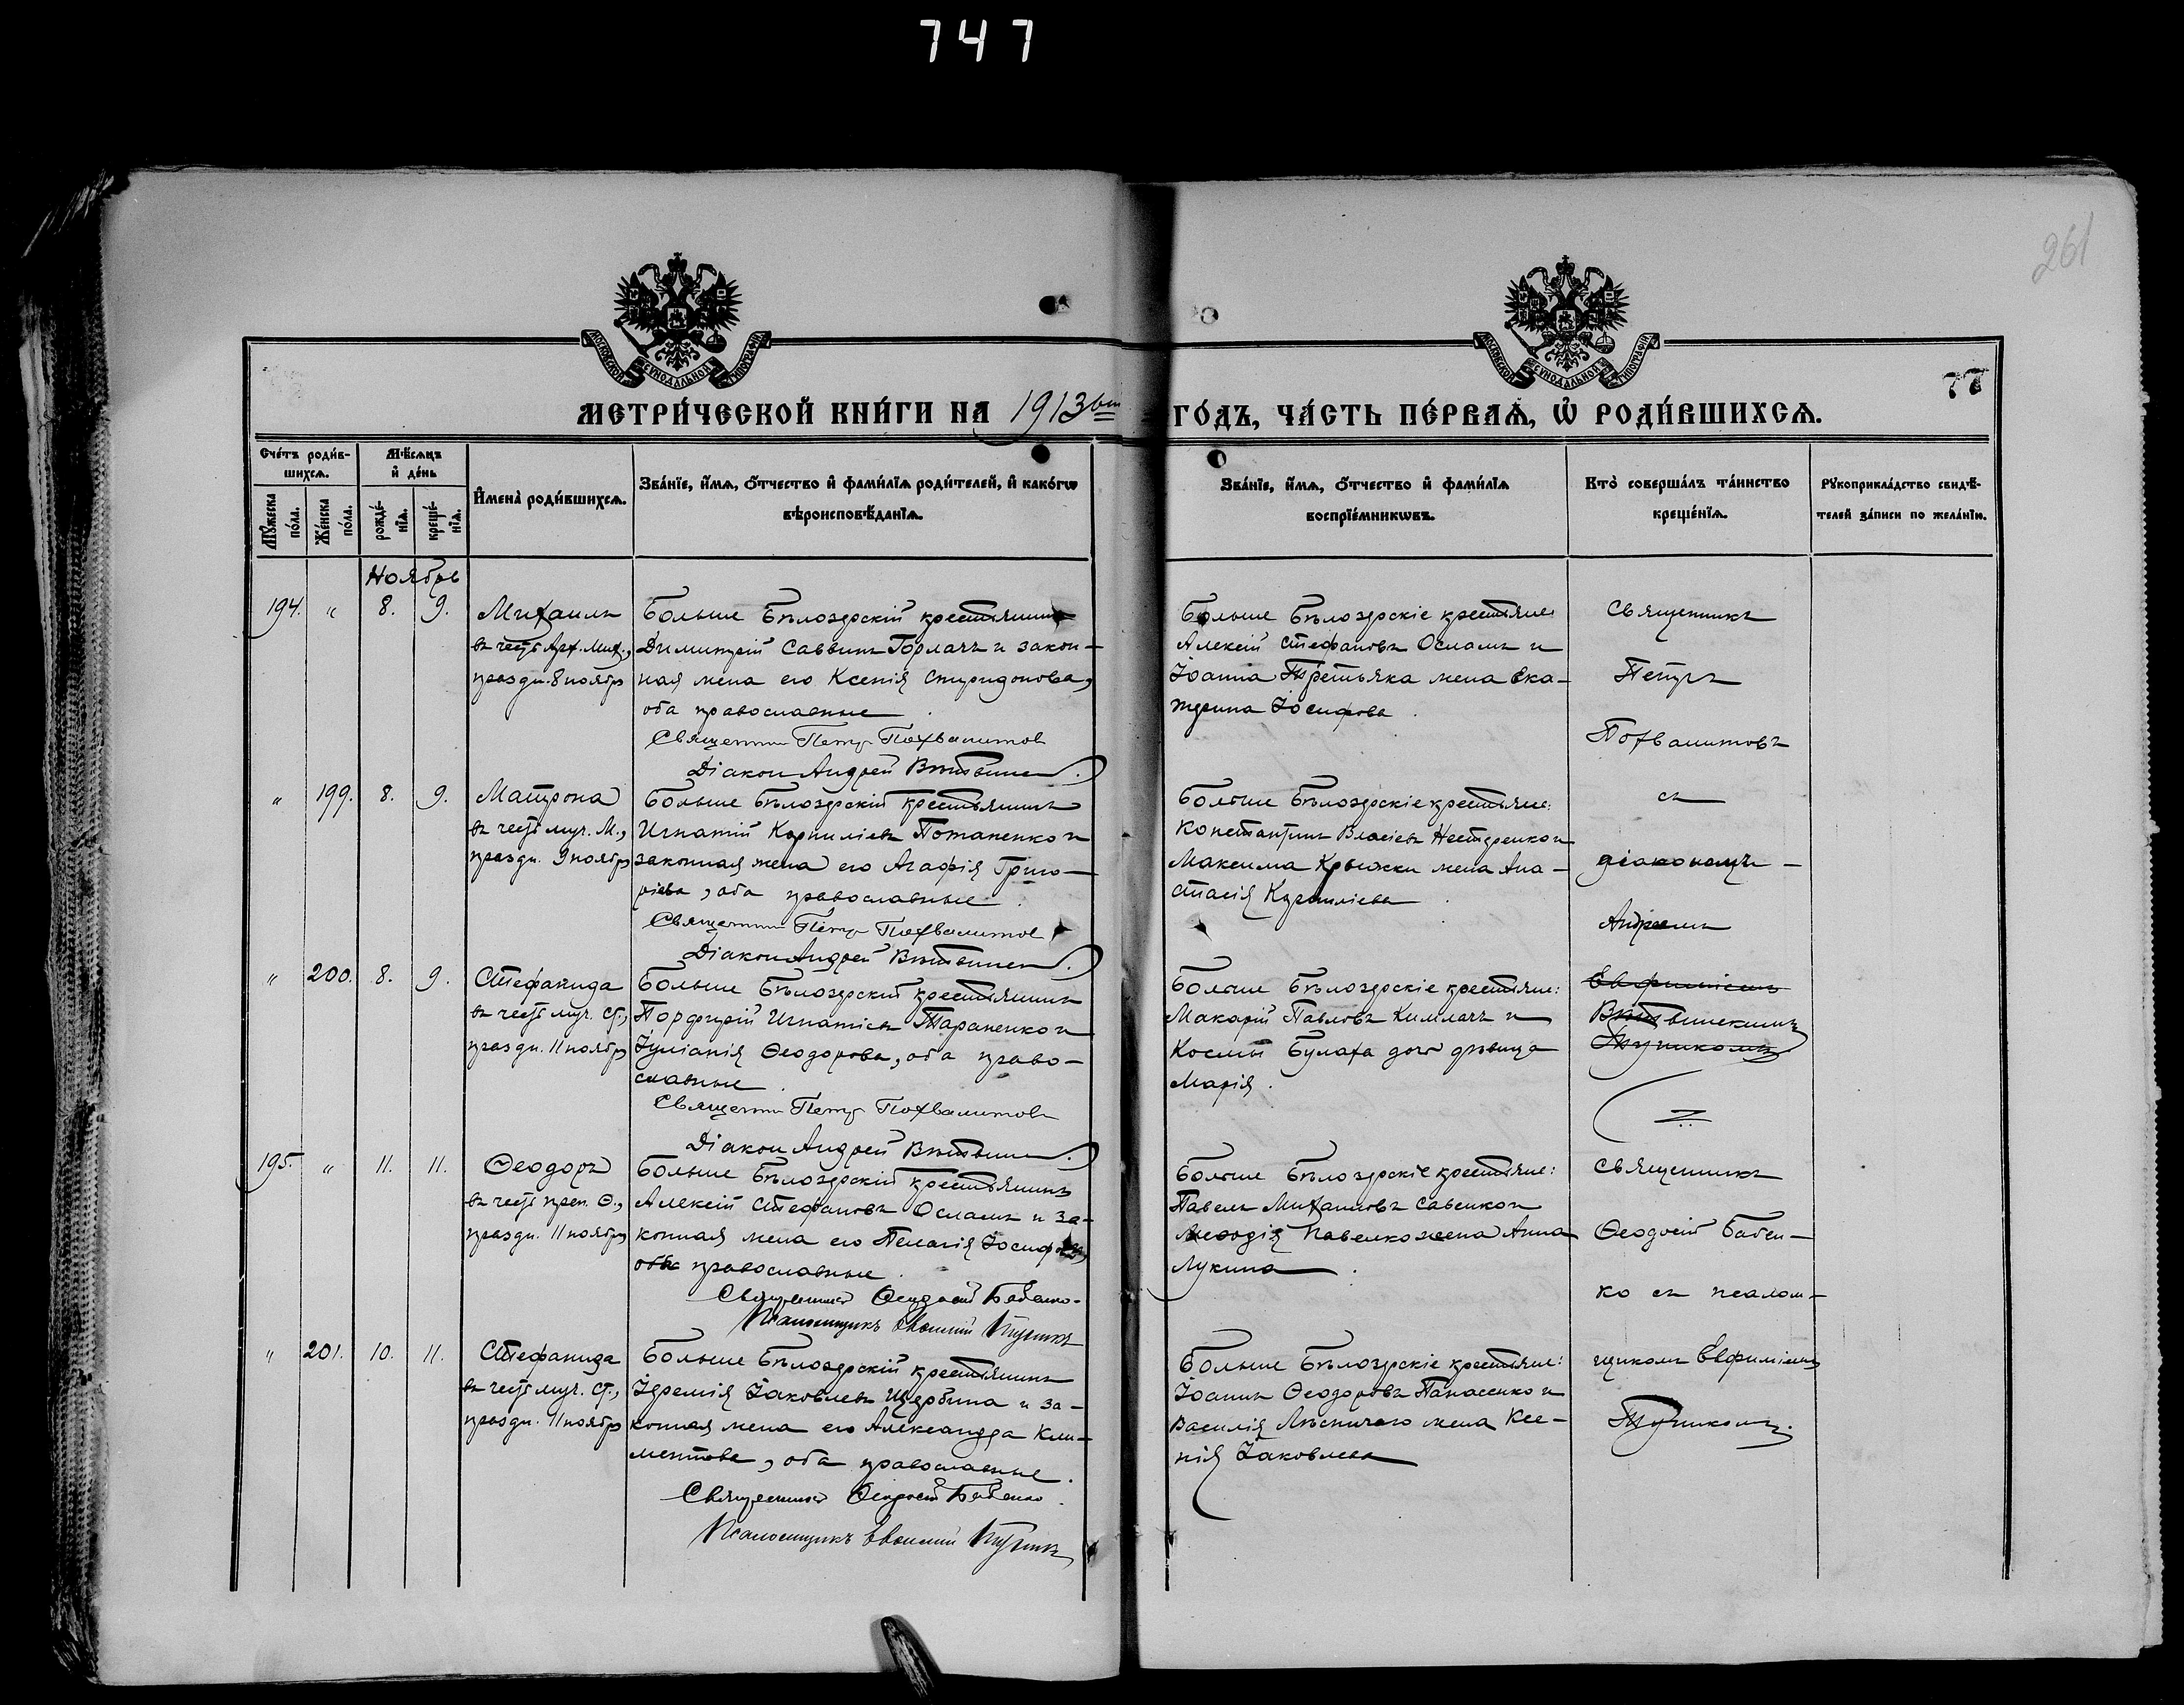 747
261
77
МОСКОВСКОЙ СѴНОДАЛЬНОЙ ТИПОГРАФІИ
МОСКОВСКОЙ СѴНОДАЛЬНОЙ ТИПОГРАФІИ
МЕТРИ́ЧЕСКОЙ КНИ́ГИ НА 1913 ГО́ДЪ, ЧА́СТЬ ПЕ́РВАѦ, Ѡ҆ РОДИ́ВШИХСѦ.
Сче́тъ роди́в-
шихсѧ.
Мꙋ́жеска по́ла.
Же́нска по́ла.
Мѣ́сѧцъ
и҆ де́нь
рожде́-
нїѧ.
креще́-
нїѧ.
И҆мена̀ роди́вшихсѧ.
Зва́нїе, и҆́мѧ, ѻ҆́тчество и҆ фами́лїѧ роди́телей, и҆ како́гѡ
вѣроисповѣ́данїѧ.
Зва́нїе, и҆́мѧ, ѻ҆́тчество и҆ фами́лїѧ
воспрїе́мникѡвъ.
Кто̀ соверша́лъ та́инство
креще́нїѧ.
Рꙋкоприкла́дство свидѣ́-
телей за́писи по жела́нїю.
Ноябрь
194. " 8. 9.
Михаилъ
въ честь Арх. Мих.,
праздн. 8 ноября
Больше Бѣлозерскій крестьянинъ
Димитрій Саввинъ Горлачъ и закон-
ная жена его Ксенія Спиридонова,
оба православные.
Священник Петр Похвалитов
Діакон Андрей Витвинск
Больше Бѣлозерскіе крестьяне:
Алексій Стефановъ Осламъ и
Іоанна Третьяка жена Ека-
терина Іосифова.
Священникъ
Петръ
Похвалитовъ
" 199. 8. 9.
Матрона
въ честь муч. М.,
праздн. 9 ноября
Больше Бѣлозерскій крестьянинъ
Игнатій Корниліевъ Потапенко и
законная жена его Агафія Григо-
ріева, оба православные.
Священник Петр Похвалитов
Діакон Андрей Витвинск
Больше Бѣлозерскіе крестьяне:
Константинъ Власіевъ Нестеренко и
Максима Крыжки жена Ана-
стасія Корниліева.
съ
діакономъ
Андреемъ
" 200. 8. 9.
Стефанида
въ честь муч. Ст.,
праздн. 11 ноября
Больше Бѣлозерскій крестьянинъ
Порфирій Игнатіевъ Тараненко и
Іуліанія Ѳеодорова, оба право-
славные.
Священник Петр Похвалитов
Діакон Андрей Витвинск
Больше Бѣлозерскіе крестьяне:
Макарій Павловъ Кимлачъ и
Космы Булаха дочь дѣвица
Марія.
Евфиміемъ
Витвинскимъ
Тупикомъ
195. " 11. 11.
Ѳеодоръ
въ честь преп. Ѳ.,
праздн. 11 ноября
Больше Бѣлозерскій крестьянинъ
Алексій Стефановъ Осламъ и за-
конная жена его Пелагія Іосифова,
оба православные.
Священник Ѳеодосій Бабенко
Псаломщикъ Евфимій Тупикъ
Больше Бѣлозерскіе крестьяне:
Павелъ Михаиловъ Савенко и
Меѳодія Павелко жена Анна
Лукина.
Священникъ
Ѳеодосій Бабен-
ко съ псалом-
щикомъ Евфиміемъ
Тупикомъ.
" 201. 10. 11.
Стефанида
въ честь муч. Ст.,
праздн. 11 ноября
Больше Бѣлозерскій крестьянинъ
Іеремія Іаковлевъ Щербина и за-
конная жена его Александра Кли-
ментова, оба православные.
Священник Ѳеодосій Бабенко.
Псаломщикъ Евфимій Тупикъ
Больше Бѣлозерскіе крестьяне:
Іоаннъ Ѳеодоровъ Панасенко и
Василія Лѣсничаго жена Ксе-
нія Іаковлева